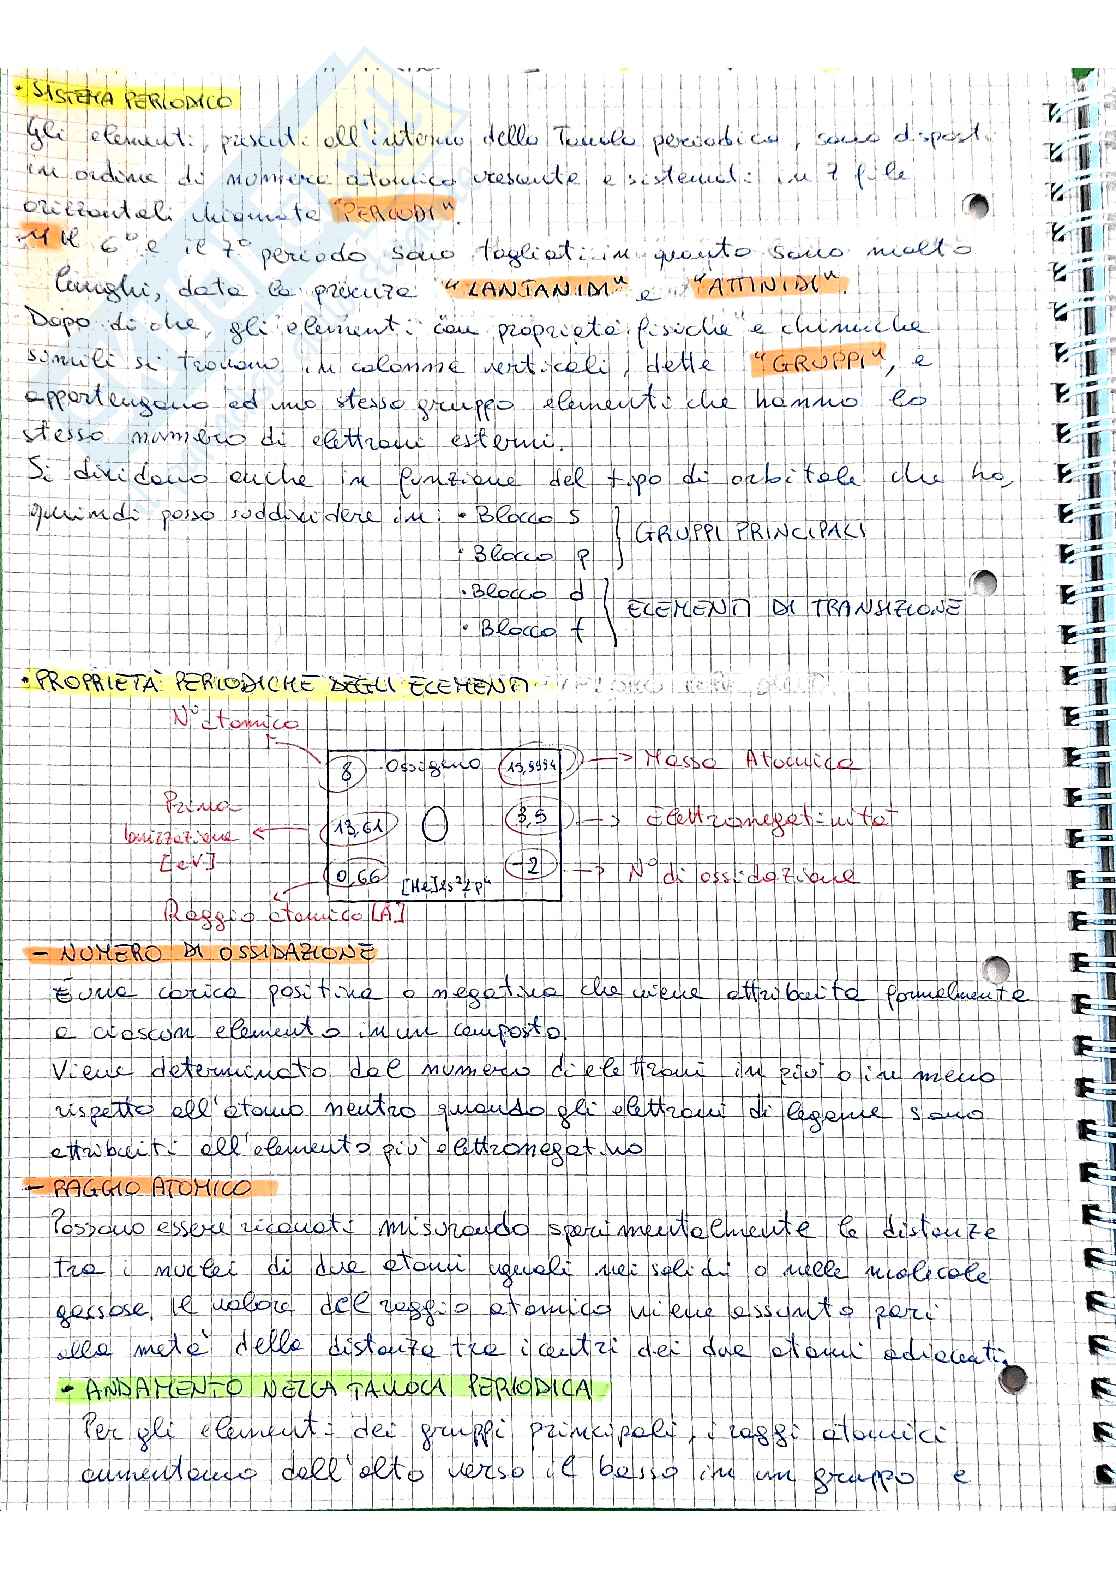 • SISTEMA PERIODICO
Gli elementi, presenti all'interno della Tavola periodica, sono disposti
in ordine di numero atomico crescente e sistemati in 7 file
orizzontali chiamate "PERIODI".
Il 6° e il 7° periodo sono tagliati in quanto sono molto
lunghi, data la presenza "LANTANIDI" e "ATTINIDI".
Dopo di che, gli elementi con proprietà fisiche e chimiche
simili si trovano in colonne verticali, dette "GRUPPI", e
appartengono ad uno stesso gruppo elementi che hanno lo
stesso numero di elettroni esterni.
Si dividono anche in funzione del tipo di orbitale che ho,
quindi posso suddividere in: • Blocco s
• Blocco p
GRUPPI PRINCIPALI
• Blocco d
• Blocco f
ELEMENTI DI TRANSIZIONE
• PROPRIETÀ PERIODICHE DEGLI ELEMENTI
N° atomico
8 Ossigeno 15,9994 → Massa Atomica
Prima
Ionizzazione
[eV]
13,61 O 3,5 → Elettronegatività
0,66 [He]2s²2p⁴ -2 → N° di ossidazione
Raggio atomico [Å]
- NUMERO DI OSSIDAZIONE
È una carica positiva o negativa che viene attribuita formalmente
a ciascun elemento in un composto.
Viene determinato dal numero di elettroni in più o in meno
rispetto all'atomo neutro quando gli elettroni di legame sono
attribuiti all'elemento più elettronegativo
- RAGGIO ATOMICO
Possono essere ricavati misurando sperimentalmente la distanza
tra i nuclei di due atomi uguali nei solidi o nelle molecole
gassose. Il valore del raggio atomico viene assunto pari
alla metà della distanza tra i centri dei due atomi adiacenti.
• ANDAMENTO NELLA TAVOLA PERIODICA
Per gli elementi dei gruppi principali, i raggi atomici
aumentano dall'alto verso il basso in un gruppo e